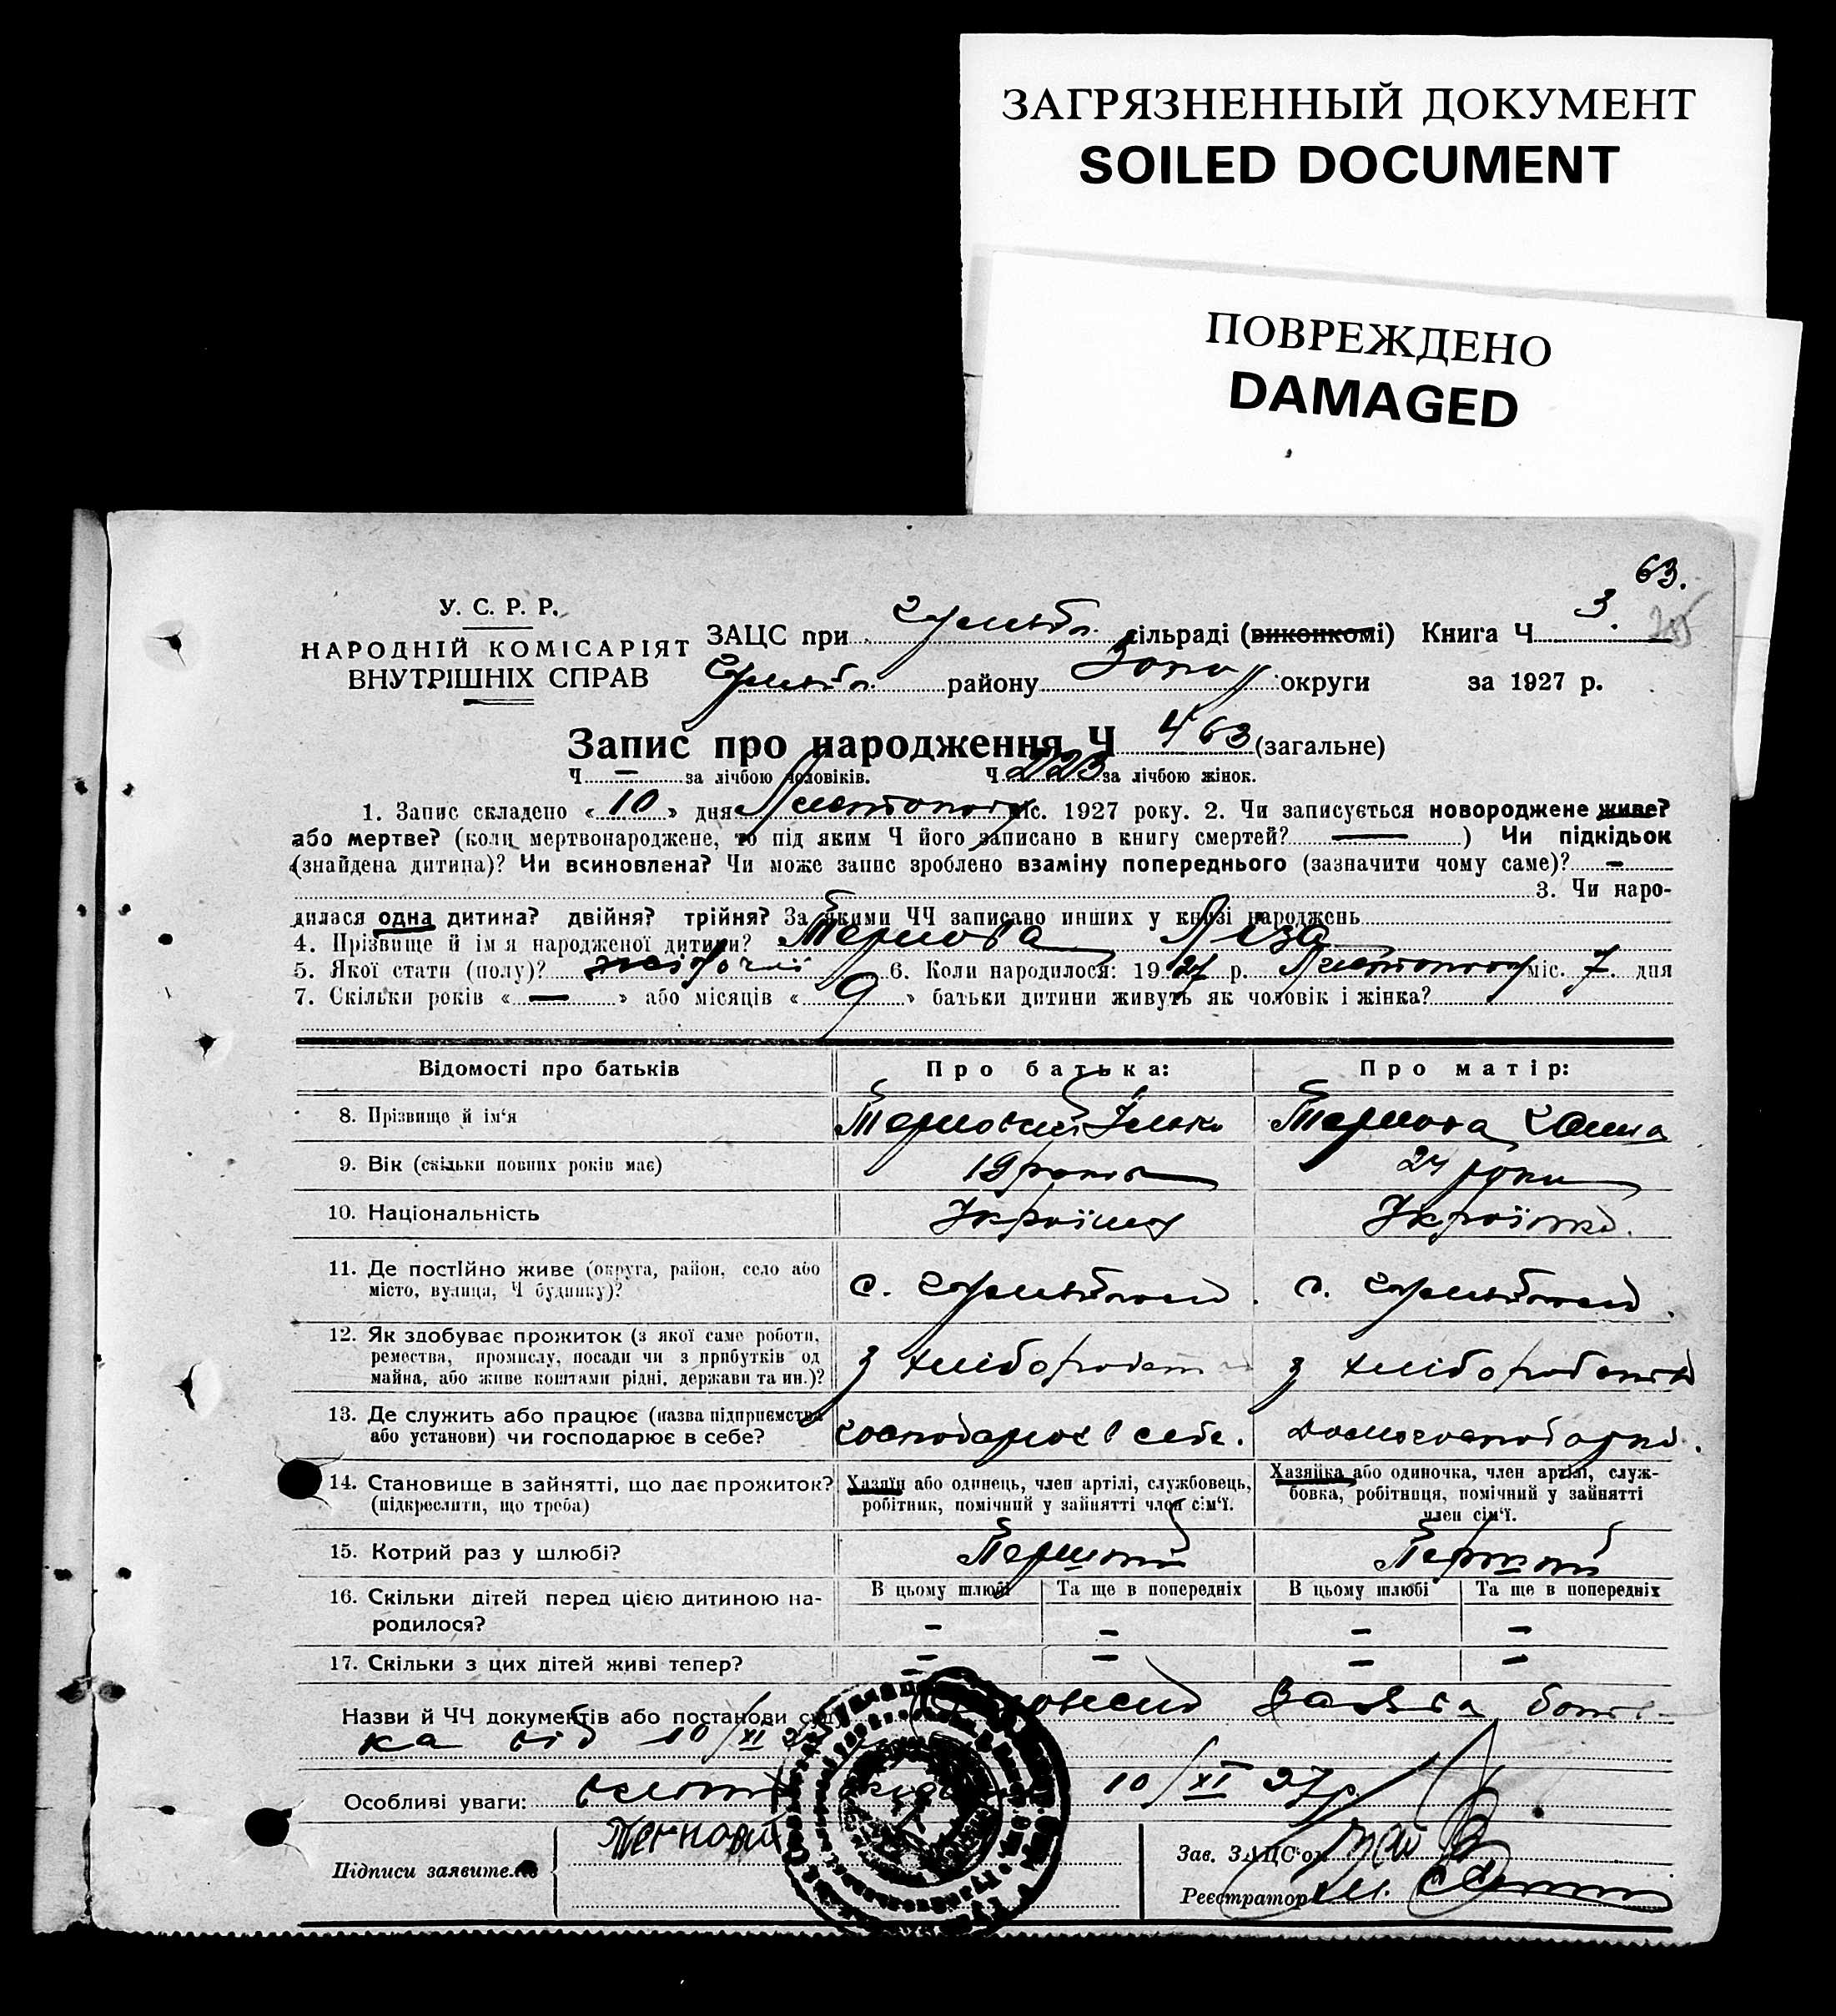 ЗАГРЯЗНЕННЫЙ ДОКУМЕНТ
SOILED DOCUMENT
ПОВРЕЖДЕНО
DAMAGED
63.
У. С. Р. Р.
НАРОДНІЙ КОМІСАРІЯТ
ВНУТРІШНІХ СПРАВ
ЗАЦС при сільраді (виконкомі) Книга Ч 3.
району Запор округи за 1927 р.
Запис про народження Ч 463 (загальне)
Ч — за лічбою чоловіків. Ч 223 за лічбою жінок.
1. Запис складено « 10 » дня Листопада міс. 1927 року. 2. Чи записується новороджене живе?
або мертве? (коли мертвонароджене, то під яким Ч його записано в книгу смертей? — ) Чи підкідьок
(знайдена дитина)? Чи всиновлена? Чи може запис зроблено взаміну попереднього (зазначити чому саме)? —
3. Чи наро-
дилася одна дитина? двійня? трійня? За якими ЧЧ записано инших у книзі народжень
4. Прізвище й ім'я народженої дитини? Тернова Ліза
5. Якої стати (полу)? жіночої 6. Коли народилося: 1927 р. Листопада міс. 7. дня
7. Скільки років « — » або місяців « 9 » батьки дитини живуть як чоловік і жінка?
Відомості про батьків Про батька: Про матір:
8. Прізвище й ім'я Терновий Ілько Тернова Ганна
9. Вік (скільки повних років має) 19 років 24 роки
10. Національність Українец Українка.
11. Де постійно живе (округа, район, село або
місто, вулиця, Ч будинку)? с. с.
12. Як здобуває прожиток (з якої саме роботи,
ремества, промислу, посади чи з прибутків од
майна, або живе коштами рідні, держави та ин.)? з хліборобства з хліборобства
13. Де служить або працює (назва підприємства
або установи) чи господарює в себе? господарює в себе. домогосподарка.
14. Становище в зайнятті, що дає прожиток?
(підкреслити, що треба)
Хазяїн або одинець, член артілі, службовець,
робітник, помічний у зайнятті член сім'ї.
Хазяйка або одиночка, член артілі, служ-
бовка, робітниця, помічний у зайнятті
член сім'ї.
15. Котрий раз у шлюбі? Перший Перший
16. Скільки дітей перед цією дитиною на-
родилося?
В цьому шлюбі Та ще в попередніх В цьому шлюбі Та ще в попередніх
— — — —
17. Скільки з цих дітей живі тепер? — — — —
Назви й ЧЧ документів або постанови суду Заява бать-
ка від 10/XI 27
Особливі уваги: 10/XI 27р
Терновий
Підписи заявителів
Зав. ЗАЦС'ом
Реєстратор